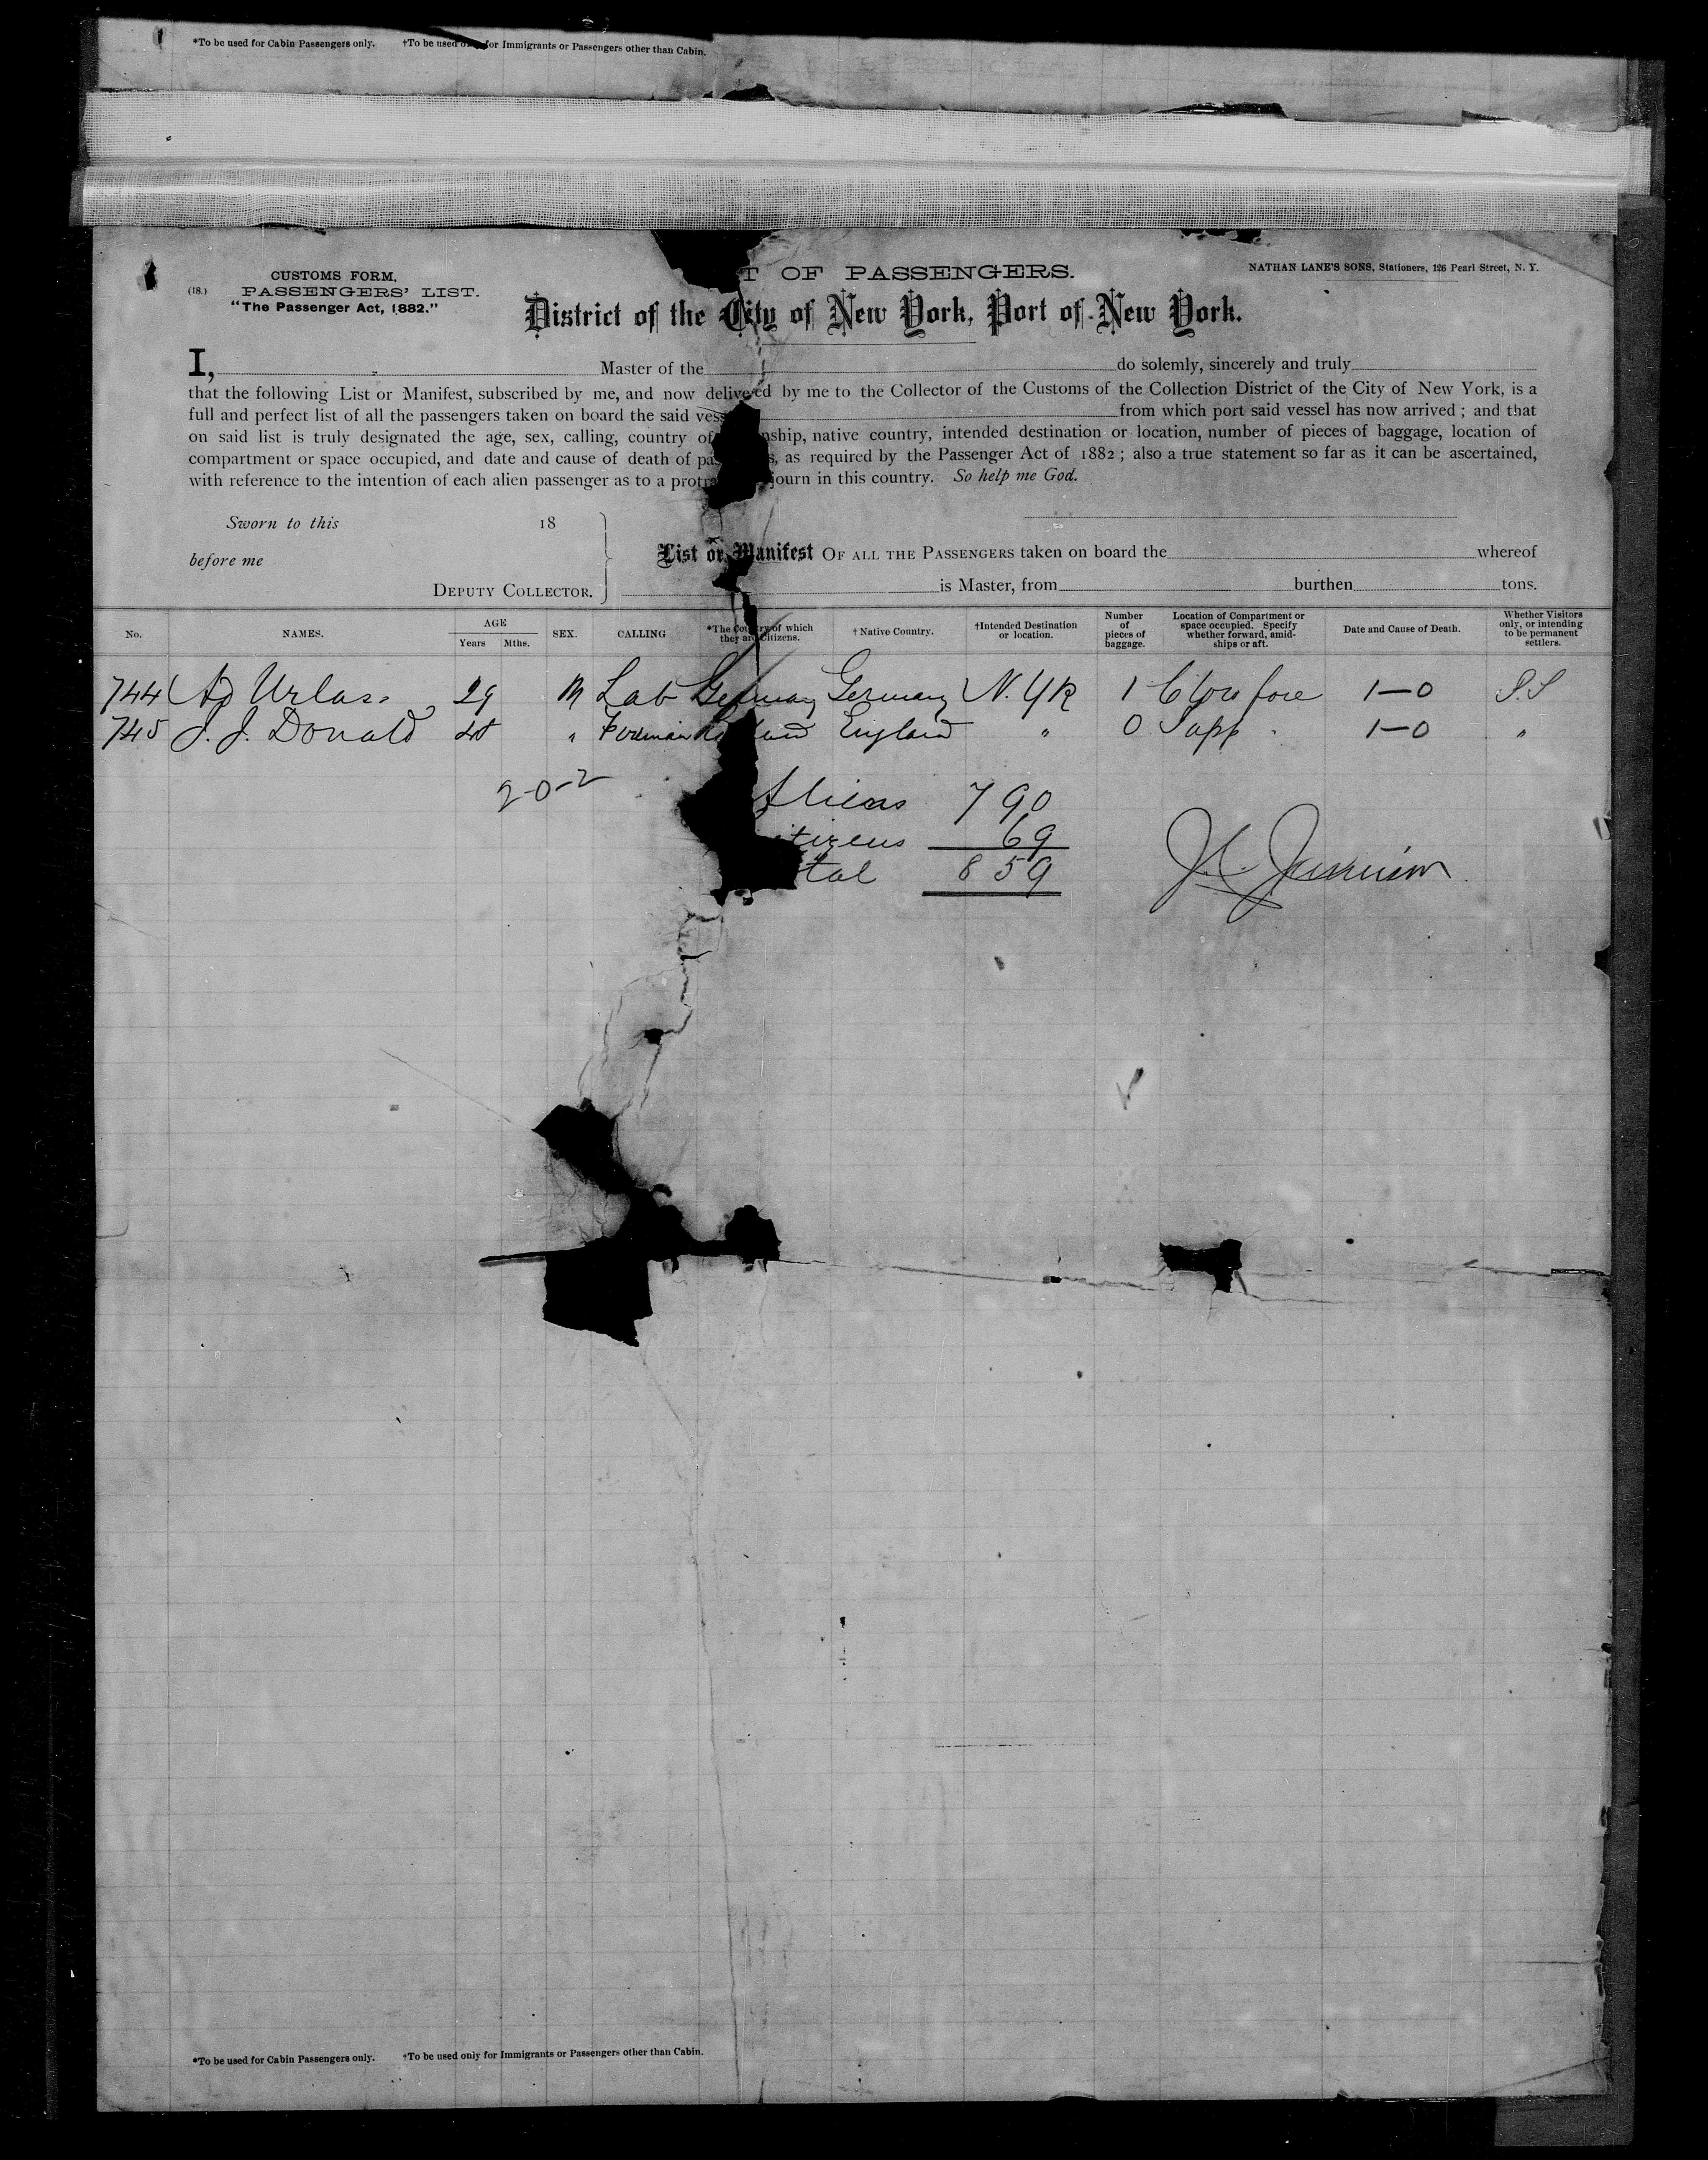 *To be used for Cabin Passengers only. †To be used for Immigrants or Passengers other than Cabin.
CUSTOMS FORM,
(18.) PASSENGERS' LIST.
"The Passenger Act, 1882."
T OF PASSENGERS.
NATHAN LANE'S SONS, Stationers, 126 Pearl Street, N. Y.
District of the City of New York, Port of New York.
I, Master of the do solemnly, sincerely and truly
that the following List or Manifest, subscribed by me, and now delivered by me to the Collector of the Customs of the Collection District of the City of New York, is a
full and perfect list of all the passengers taken on board the said vess from which port said vessel has now arrived ; and that
on said list is truly designated the age, sex, calling, country of nship, native country, intended destination or location, number of pieces of baggage, location of
compartment or space occupied, and date and cause of death of pa s, as required by the Passenger Act of 1882 ; also a true statement so far as it can be ascertained,
with reference to the intention of each alien passenger as to a protra journ in this country. So help me God.
Sworn to this 18
before me
DEPUTY COLLECTOR.
List or Manifest OF ALL THE PASSENGERS taken on board the whereof
is Master, from burthen tons.
No. NAMES. AGE Years Mths. SEX. CALLING *The Country of which they are Citizens. † Native Country. †Intended Destination or location. Number of pieces of baggage. Location of Compartment or space occupied. Specify whether forward, amid-ships or aft. Date and Cause of Death. Whether Visitors only, or intending to be permanent settlers.
744 Ad Urlass 29 M Lab Germany Germany N. Y K 1 fore 1-0 S.S
745 J. J. Donald " England " 0 1-0 "
2-0-2
Aliens 790
itizens 69
tal 859
*To be used for Cabin Passengers only. †To be used only for Immigrants or Passengers other than Cabin.